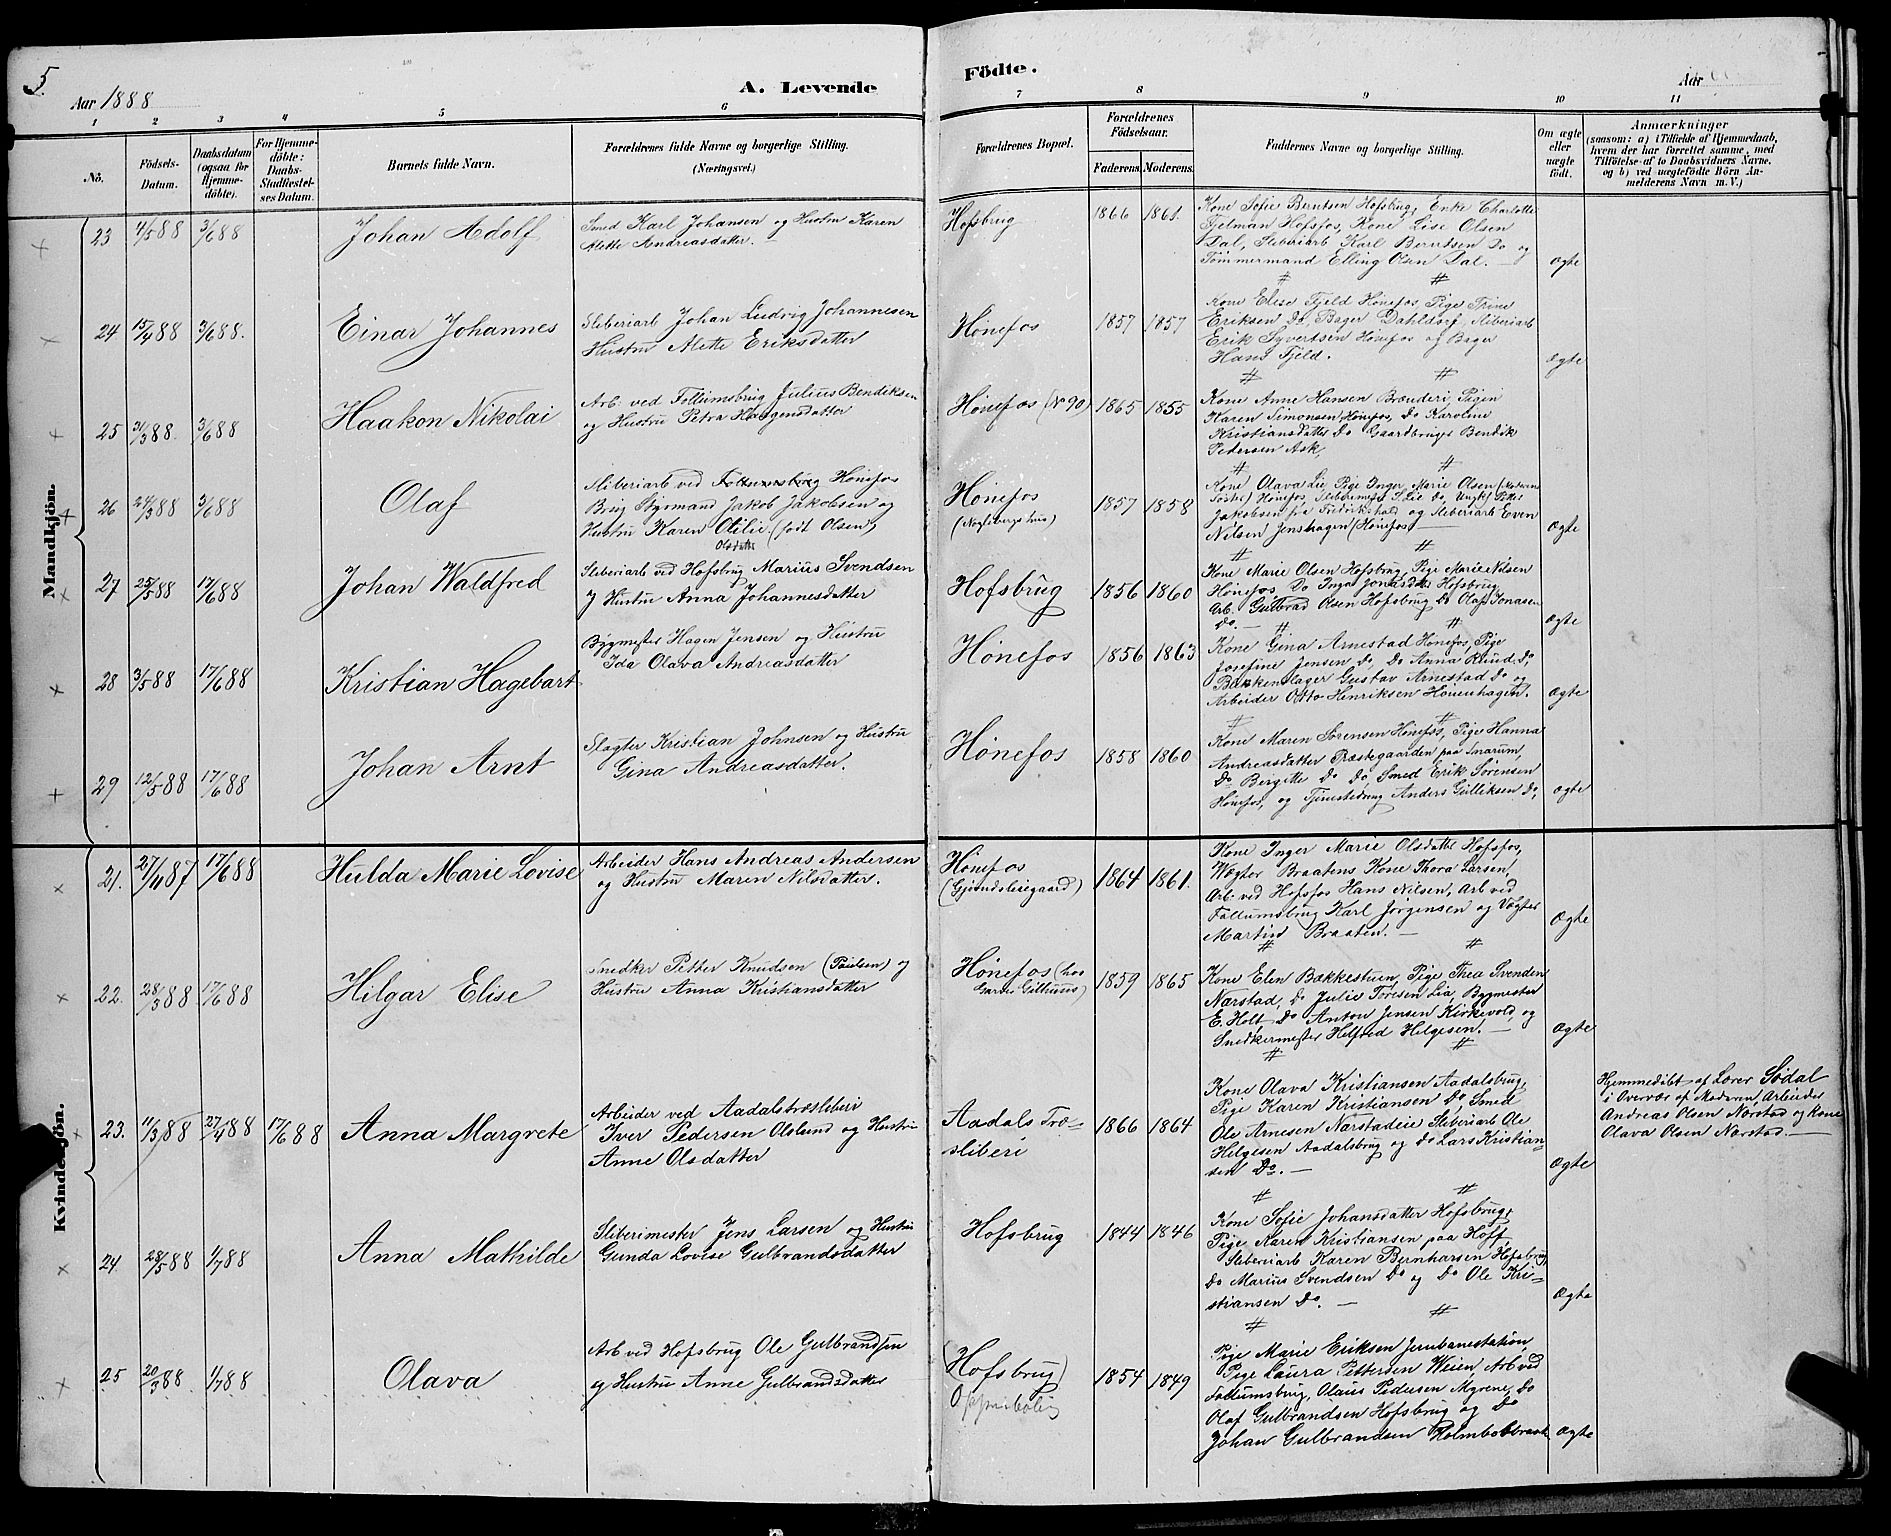 5.
Aar 1888
A. Levende
Födte.
Aar
1 2 3 4 5 6 7 8 9 10 11
No.
Födsels-Datum.
Daabsdatum (ogsaa for Hjemmedöbte).
For Hjemmedöbte: Daabs-Stadfæstelses Datum.
Barnets fulde Navn.
Forældrenes fulde Navne og borgerlige Stilling.
(Næringsvei.)
Forældrenes Bopæl.
Forældrenes Födselsaar.
Faderens. Moderens.
Faddernes Navne og borgerlige Stilling.
Om ægte eller uægte födt.
Anmærkninger
(saasom: a) i Tilfælde af Hjemmedaab,
hvem der har forrettet samme, med
Tilföielse af to Daabsvidners Navne,
og b) ved uægtefödte Börn Anmelderens Navn m. V.)
Mandkjön.
23 4/5 88 3/6 88 Johan Adolf
Smed Karl Johansen og Hustru Karen
Alette Andreasdatter.
Hofsbrug 1866 1861.
Kone Sofie Berntsen Hofsbrug, Enke Charlotte
Tjelman Hofsfos, Kone Lise Olsen
Dal, Sliberiarb Karl Berntsen Do og
Tømmermand Elling Olsen Dal. —
Ægte
24 15/4 88 3/6 88. Einar Johannes
Sliberiarb Johan Ludvig Johannesen
Hustru Alette Eriksdatter
Hønefos 1857 1857
Kone Elise Fjeld Hønefos, Pige Trine
Eriksen Do, Bager Dahldorf, Sliberiarb
Erik Syvertsen Hønefos og Bager
Hans Fjeld.
Ægte
25 31/3 88. 3/6 88 Haakon Nikolai
Arb. ved Follumsbrug Julius Bendiksen
og Hustru Petra Haagensdatter
Hønefos (No 90) 1865 1855
Kone Anne Hansen Brænderi, Pigen
Karen Simonsen Hønefos, Do Karoline
Kristiansdatter Do Gaardbruger Bendik
Pedersen Ask,
26 24/3 88 3/6 88 Olaf
Sliberiarb ved Follumsbrug Hønefos
Brug Styrmand Jakob Jakobsen og
Hustru Karen Otilie (født Olsen)
Olsdatter
Hønefos 1857 1858
Kone Olava Lie, Pige Inger Marie Olsen (Moderens
Søster) Hønefos, Sliberimester S Lie Do, Ungk. Petter
Jakobsen fra Fredrikstad og Sliberiarb Even
Nilsen Jenshagen (Hønefos) —
Ægte
27 25/5 88 17/6 88 Johan Waldfred
Sliberiarb ved Hofsbrug Marius Svendsen
& Hustru Anna Johannesdatter
Hofsbrug 1856 1860
Kone Marie Olsen Hofsbrug, Pige Marie Nilsen
Hønefos Do Inga Jonasdatter Hofsbrug
Arb. Gulbrand Olsen Hofsbrug Do Olaf Jonasen
Do. —
Ægte
28 3/5 88 17/6 88 Kristian Hagebart
Bygmester Hagen Jensen og Hustru
Ida Olava Andreasdatter
Hønefos 1856 1863
Kone Gina Arnestad Hønefos, Pige
Josefine Jensen Do, Do Anna Knud. Do,
Bækkenslager Gustav Arnestad Do og
Arbeider Otto Henriksen Hønenhagen.
Ægte
29 12/5 88 17/6 88 Johan Arnt
Slagter Kristian Johnsen og Hustru
Gina Andreasdatter.
Hønefos 1858 1860
Kone Maren Sørensen Hønefos, Pige Hanna
Andreasdatter Præstegaarden paa Snarum,
Do Bergitte Do Do, Smed Erik Sørensen
Hønefos, og Tjenestedreng Anders Gulliksen Do,
Ægte
Kvindekjön.
21. 27/11 87 17/6 88 Hulda Marie Lovise
Arbeider Hans Andreas Andersen
og Hustru Maren Nilsdatter.
Hønefos 1864 1861.
Kone Inger Marie Olsdatter Hofsfos,
Vægter Braatens Kone Thora Larsen,
Arb. ved Hofsfos Hans Nilsen, Arb ved
Follumsbrug Karl Jørgensen og Vægter
Martin Braaten. —
Ægte
22. 28/3 88 17/6 88 Hilgar Elise
Snedker Petter Knudsen (Paulsen) og
Hustru Anna Kristiansdatter
Hønefos (hos
Garver Gilhuus) 1859 1865
Kone Elen Bakkestuen, Pige Thea Svenden
Nærstad, Do Julie Toresen Lia, Bygmester
E. Holt Do Anton Jensen Kirkevold, og
Snedkermester Helfred Helgesen. —
Ægte
23. 11/3 88 27/4 88 17/6 88 Anna Margrete
Arbeider ved Aadalstræsliberi
Iver Pedersen Olslund og Hustru
Anne Olsdatter
Aadals Træ=
sliberi 1866 1864
Kone Olava Kristiansen Aadalsbrug,
Pige Karen Kristiansen Do, Smed
Ole Arnesen Nærstadeie Sliberiarb Ole
Helgesen Aadalsbrug og Do Lars Kristian-
sen Do. —
Ægte
Hjemmedöbt af Lærer Sødal
i Overvær af Moderen, Arbeider
Andreas Olsen Nærstad og Kone
Olava Olsen Nærstad. —
24. 28/5 88 1/7 88 Anna Mathilde
Sliberimester Jens Larsen og Hustru
Gunda Lovise Gulbrandsdatter
Hofsbrug 1844 1846
Kone Sofie Johansdatter Hofsbrug,
Pige Karen Kristiansen paa Hoff
Sliberiarb Karen Bernharsen Hofsbrug,
Do Marius Svendsen Do og Do Ole Kri=
stiansen Do. —
Ægte
25 20/3 88 1/7 88 Olava
Arb ved Hofsbrug Ole Gulbrandsen
og Hustru Anne Gulbrandsdatter
(Hofsbrug) 1854 1849
Pige Marie Eriksen Jernbanestation,
Pige Laura Pettersen Weien, Arb ved
Follumsbrug, Olaus Pedersen Myrene, Do
Olaf Gulbrandsen Hofsbrug og Do
Johan Gulbrandsen
Ægte